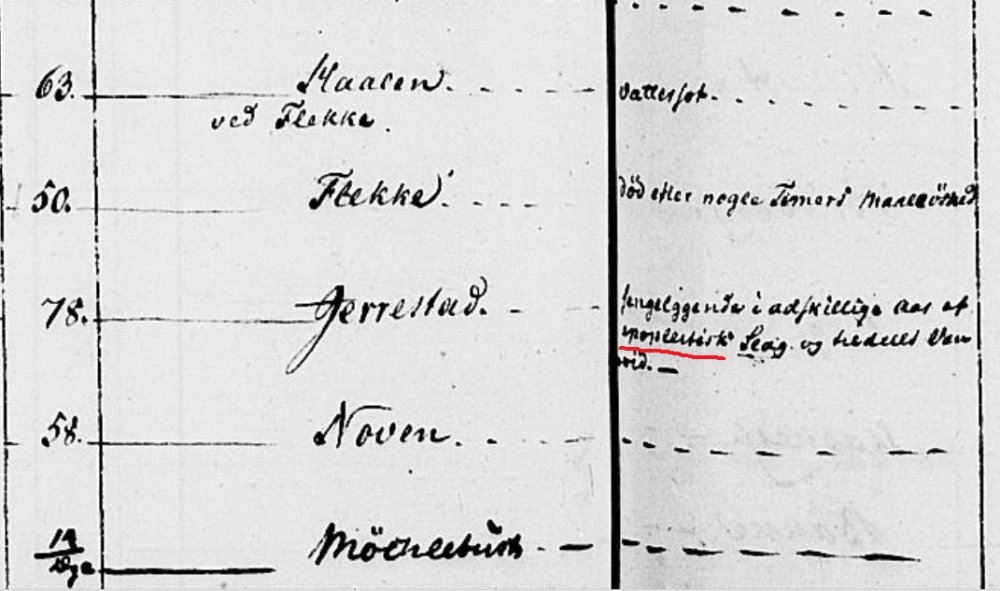 63. Haalen.
ved Flekke.
Vattersot.
50. Flekke
död efter nogle Timers Maalløshed
78. Jerrestad.
sengeliggende i adskillige Aar af
apoplectisk Slag. og tildeels Van
vid.
58. Noven.
14
Dge